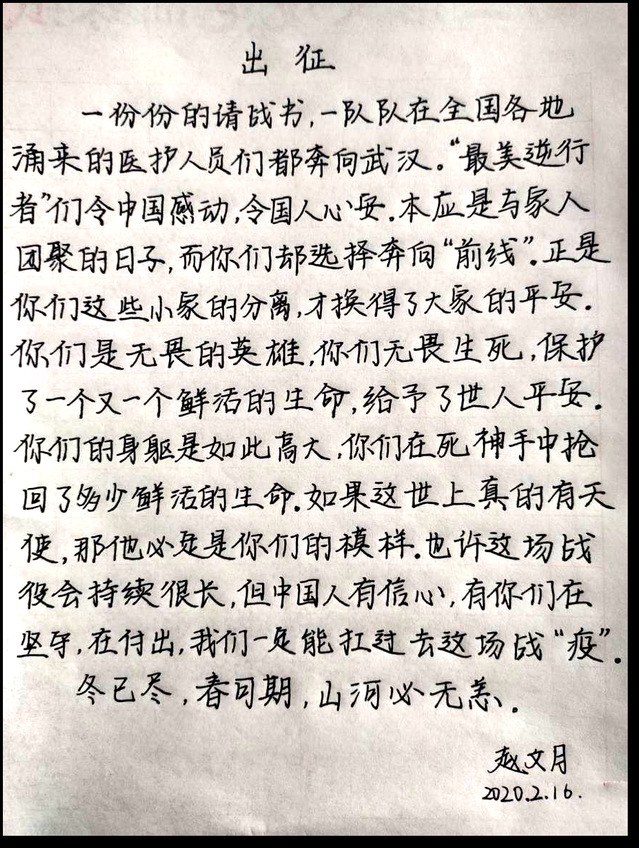 出征
一份份的请战书,一队队在全国各地
涌来的医护人员们都奔向武汉。“最美逆行
者”们令中国感动,令国人心安.本应是与家人
团聚的日子,而你们却选择奔向“前线”.正是
你们这些小家的分离,才换得了大家的平安.
你们是无畏的英雄,你们无畏生死,保护
了一个又一个鲜活的生命,给予了世人平安.
你们的身躯是如此高大,你们在死神手中抢
回了多少鲜活的生命.如果这世上真的有天
使,那他必定是你们的模样.也许这场战
役会持续很长,但中国人有信心,有你们在
坚守,在付出,我们一定能扛过去这场战“疫”.
冬已尽,春可期,山河必无恙.
赵文月
2020.2.16.